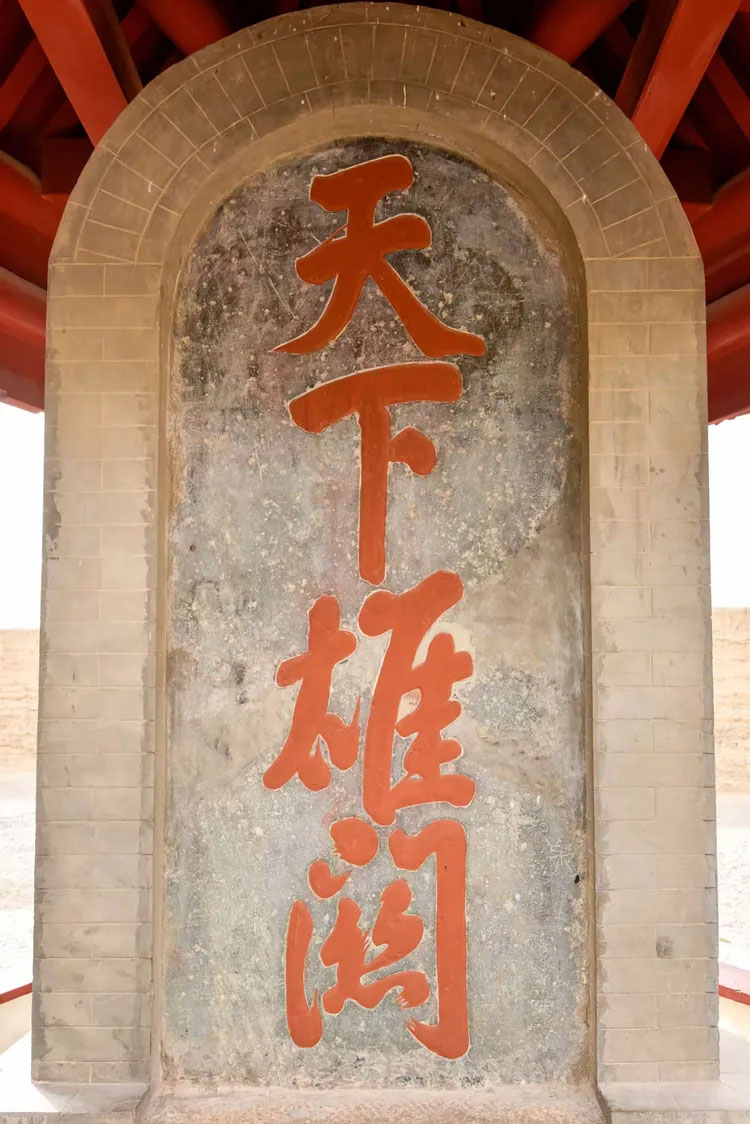 天下雄関